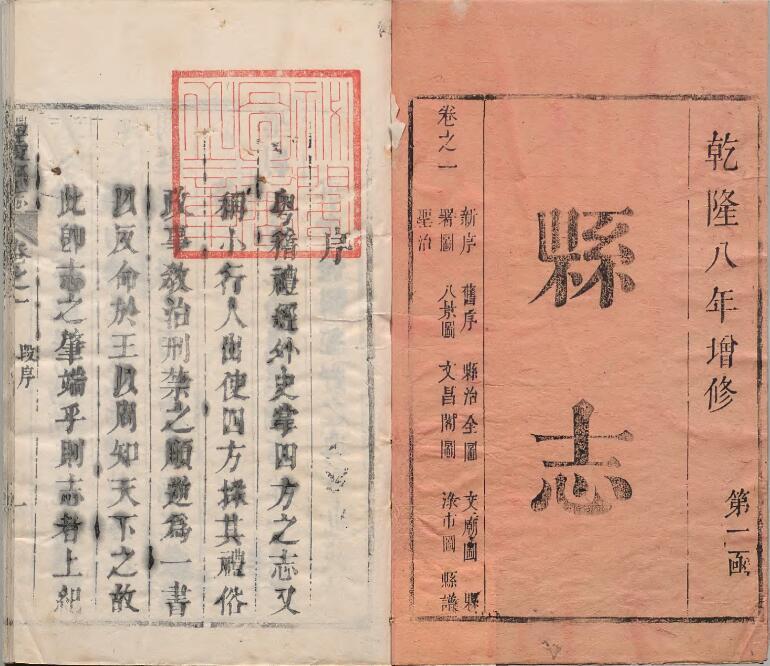 乾隆八年增修
第一函
縣志
卷之一
新序 舊序 縣治全圖 文廟圖 縣
署圖 八景圖 文昌閣圖 淥市圖 縣譜
聖治
序
粵稽禮經外史掌四方之志又
稱小行人出使四方採其禮俗
政事敎治刑禁之順逆為一書
以反命於王以周知天下之故
此卽志之肇端乎則志者上紀
縣志
卷之一
段序
一